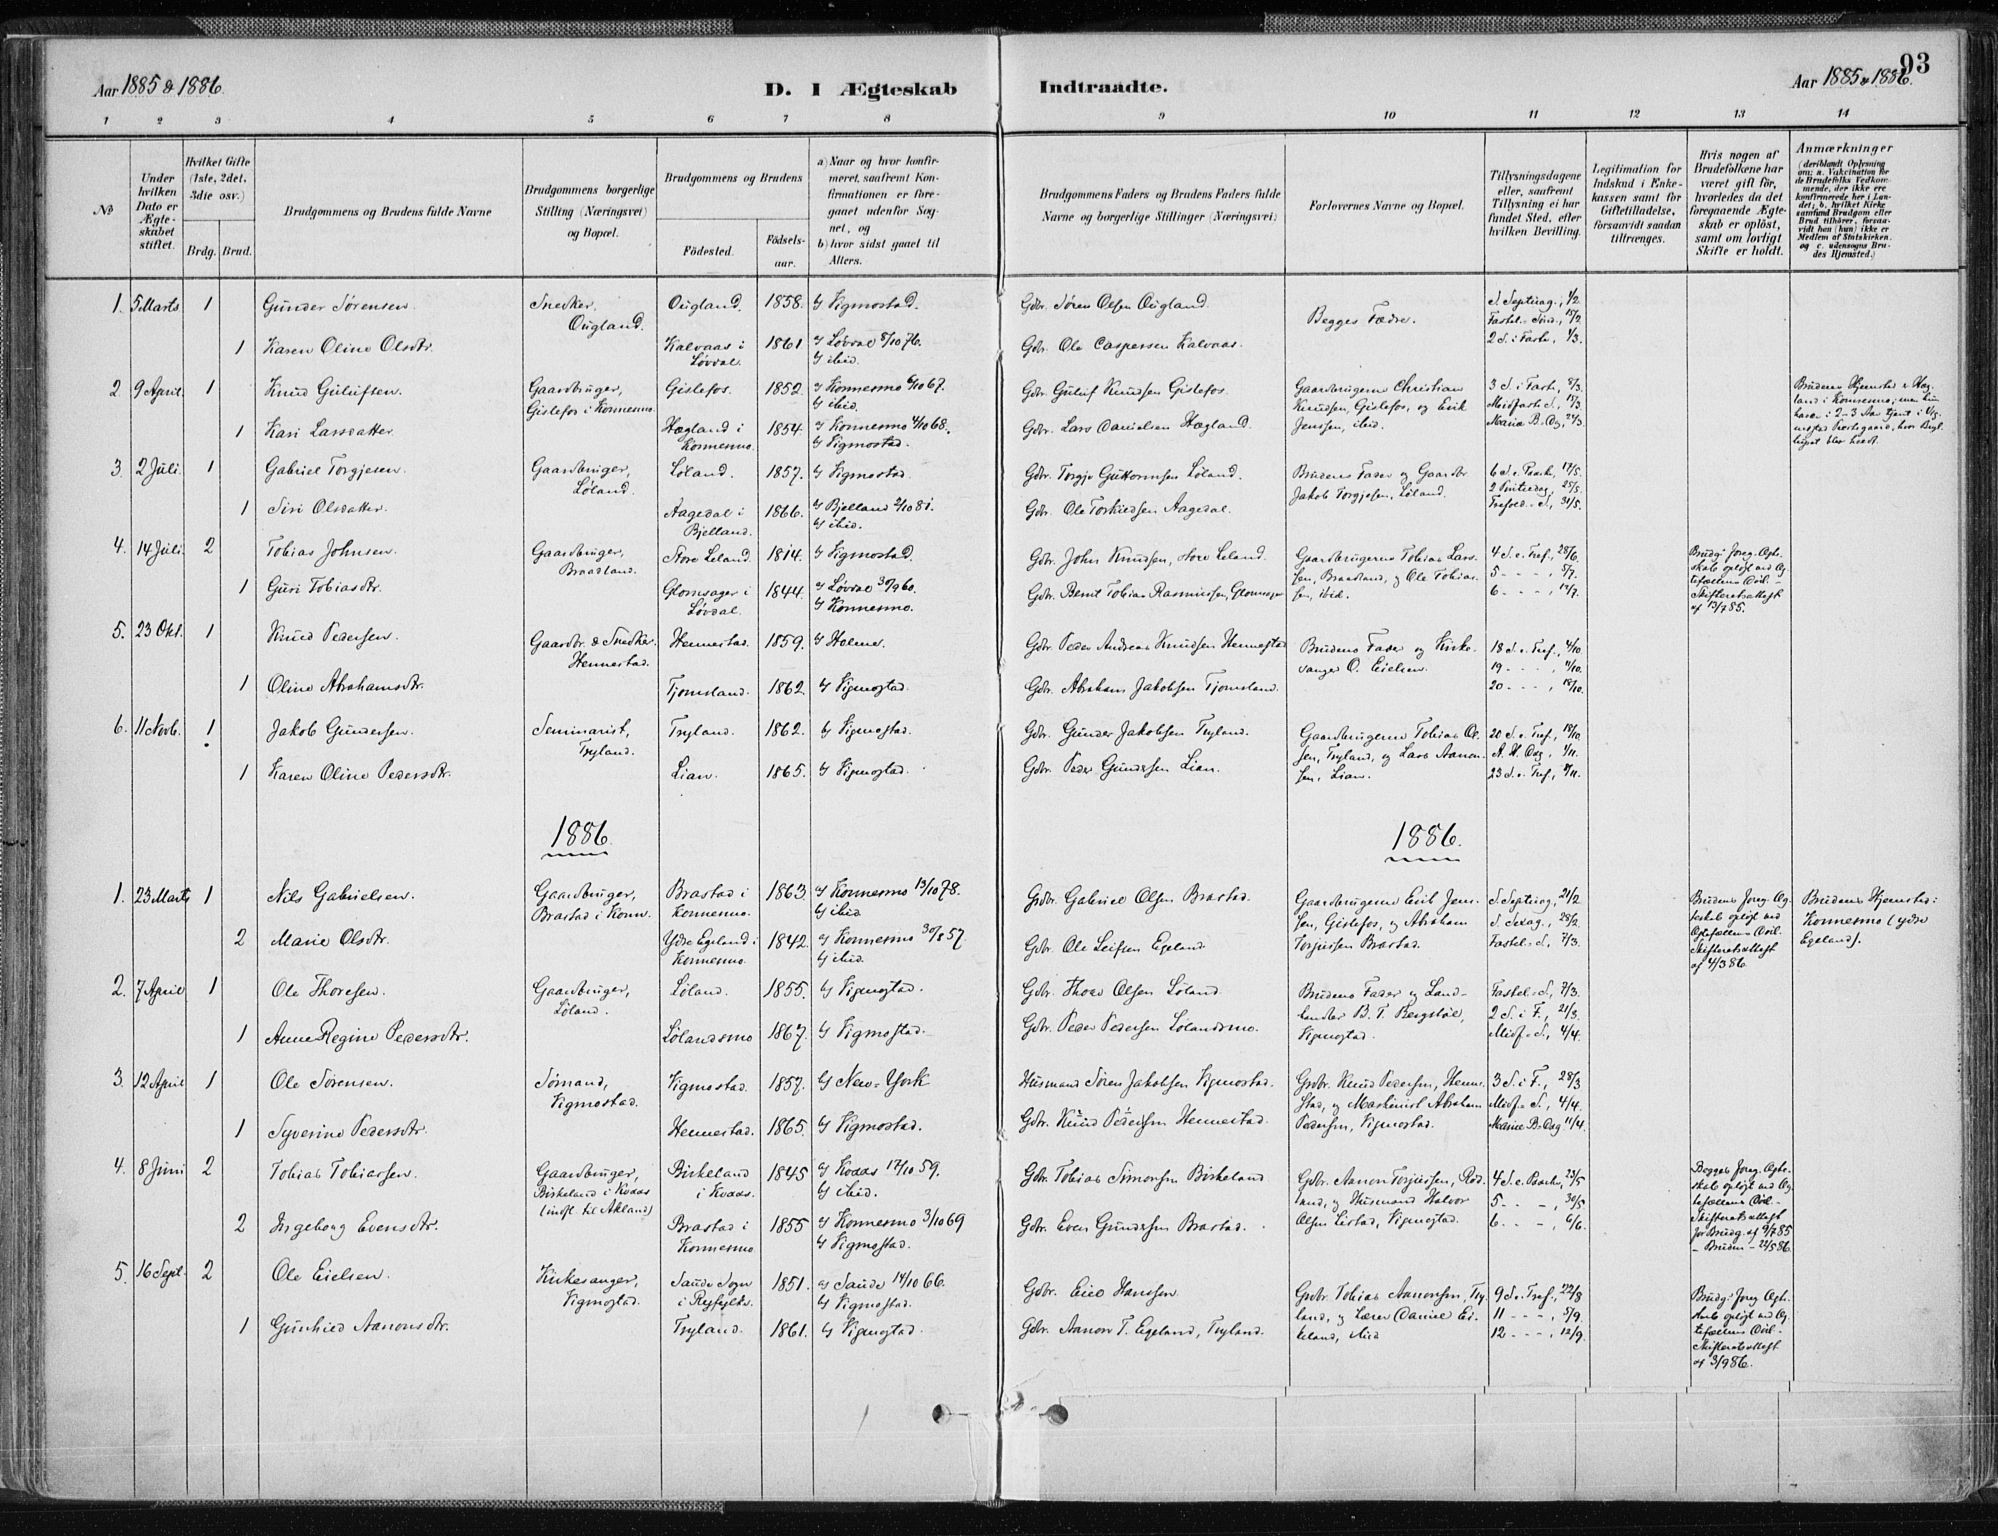 Aar 1885 & 1886.
D. I Ægteskab Indtraadte.
Aar 1885 & 1886.
93
1 2 3 4 5 6 7 8 9 10 11 12 13 14
№
Under hvilken Dato er Ægteskabet stiftet.
Hvilket Gifte (1ste, 2det, 3die osv.)
Brdg. Brud.
Brudgommens og Brudens fulde Navne
Brudgommens borgerlige Stilling (Næringsvei) og Bopæl.
Brudgommens og Brudens
Födested.
Födselsaar.
a) Naar og hvor konfirmeret, saafremt Konfirmationen er foregaaet udenfor Sognet, og
b) hvor sidst gaaet til Alters.
Brudgommens Faders og Brudens Faders fulde Navne og borgerlige Stillinger (Næringsvei)
Forlovernes Navne og Bopæl.
Tillysningsdagene eller, saafremt Tillysning ei har fundet Sted, efter hvilken Bevilling.
Legitimation for Indskud i Enkekassen samt for Giftetilladelse, forsaavidt saadan tiltrænges.
Hvis nogen af Brudefolkene har været gift för, hvorledes da det foregaaende Ægteskab er oplöst, samt om lovligt Skifte er holdt.
Anmærkninger
(deriblandt Oplysning om: a. Vakcination for de Brudefolks Vedkommende, der ikke ere konfirmerede her i Landet; b. hvilket Kirkesamfund Brudgom eller Brud tilhörer, forsaavidt han (hun) ikke er Medlem af Statskirken, og c. udensogns Brudes Hjemsted.)
1. 5 Marts 1 Gunder Sørensen. Snedker, Ougland. Ougland. 1858. b) Vigmostad. Gdbr. Søren Olsen Ougland. Begges Fædre. S. Septuag., 1/2 Fastel. Sønd., 15/2 2 S. i Faste, 1/3.
1 Karen Oline Olsdtr. Kalvaas i Løvdal. 1861 a) Løvdal 8/10 76. b) ibid. Gdbr. Ole Caspersen Kalvaas.
2 9 April. 1 Knud Gulufsen. Gaardbruger, Gislefos i Konnesmo. Gislefos. 1852. a) Konnesmo 6/10 67. b) ibid. Gdbr. Guluf Knudsen Gislefos. Gaardbrugerne Christian Knudsen, Gislefos, og Erik Jenssen, ibid. 3 S. i Fast., 8/3. Midfaste S., 15/3. Mariæ B. Dag,
Brudens Hjemsted er Hægland i Konnesmo; men hun har i 2-3 Aar tjent i Vigmostad Præstegaard, hvor Bryllupet blev holdt.
1 Kari Larsdatter. Hægland i Konnesmo. 1854. a) Konnesmo 4/10 68. b) Vigmostad. Gdbr. Lars Danielsen Hægland.
3. 2 Juli. 1 Gabriel Torgjesen. Gaardbruger, Løland. Løland. 1857. b) Vigmostad. Gdbr. Torgje Guttormsen Løland. Brudens Fader og Gaardbr Jakob Torgjesen, Løland. 6 S. e. Paaske, 17/5. 2 Pintsedag, 25/5. Trefold. S., 31/5.
1 Siri Olsdatter. Aagedal i Bjelland. 1866. a) Bjelland 2/10 81. b) ibid. Gdbr. Ole Torkildsen Aagedal.
4. 14 Juli. 2 Tobias Johnsen. Gaardbruger, Braadland. Store Leland. 1814. b) Vigmostad. Gdbr. John Knudsen, store Leland. Gaardbrugerne Tobias Larssen, Braadland, og Ole Tobiassen, ibid. 4 S. e. Tref., 28/6. 5 - - - , 5/7. 6 - - - , 12/7.
Brudg: foreg. Ægteskab opløst ved Ægtefællens Død. - Skifteretsattest af 13/7 85.
1 Guri Tobiasdtr. Glomsager i Løvdal. 1844. a) Løvdal 30/9 60. b) Konnesmo. Gdbr. Bernt Tobias Rasmussen, Glomsager
5. 23 Okt. 1 Knud Pedersen. Gaardbr. & Snedker. Hennestad. Hennestad. 1859. b) Holme. Gdbr. Peder Andreas Knudsen Hennestad Brudens Fader og Kirkesanger O. Eielsen. 18 S. e. Tref., 4/10. 19 - - - , 11/10. 20 - - - , 18/10.
1 Oline Abrahamsdtr. Tjomsland. 1862. b) Vigmostad. Gdbr. Abraham Jakobsen Tjomsland.
6. 11 Novb. 1 Jakob Gundersen. Seminarist, Tryland. Tryland. 1862. b) Vigmostad. Gdbr. Gunder Jakobsen Tryland. Gaardbrugerne Tobias Olsen, Tryland, og Lars Aanonsen, Lian. 20 S. e. Tref., 18/10. A. H. Dag, 1/11. 23 S. e. Tref., 8/11.
1 Karen Oline Pedersdtr. Lian. 1865. b) Vigmostad. Gdbr. Peder Gundersen Lian.
1886. 1886.
1. 23 Marts 1 Nils Gabrielsen. Gaardbruger, Brastad i Konn. Brastad i Konnesmo. 1863. a) Konnesmo 13/10 78. b) ibid Gdbr. Gabriel Olsen Brastad. Gaardbrugerne Erik Jenssen, Gislefos, og Abraham Torjussen Brastad. S. Septuag., 21/2 S. Sexag., 28/2. Fastel. S., 7/3.
Brudens foreg. Ægteskab opløst ved Ægtefællens Død. Skifteretsattest af 4/3 86.
Brudens Hjemsted: Konnesmo (ydre Egeland).
2 Marie Olsdtr. Ydre Egeland i Konnesmo. 1842. a) Konnesmo 30/8 57 b) ibid. Gdbr. Ole Leifsen Egeland
2. 7 April 1 Ole Thoresen. Gaardbruger, Løland. Løland. 1855. b) Vigmostad. Gdbr. Thore Olsen Løland Brudens Fader og Landhandler B. T. Bergstøl, Vigmostad. Fastel. S., 7/3. 2 S. i F., 21/3. Midf. S., 4/4.
1 Anne Regine Pedersdtr. Lølandsmo 1867. b) Vigmostad. Gdbr. Peder Pedersen Lølandsmo.
3. 12 April 1 Ole Sørensen. Sømand, Vigmostad. Vigmostad. 1857. b) New-York Husmand Søren Jakobsen Vigmostad. Grdbr. Knud Pedersen, Hennestad, og Maskinist Abraham Pedersen, Vigmostad. 3 S. i F., 28/3 Midf. S., 4/4. Mariæ B. Dag 11/4.
1 Syverine Pedersdtr. Hennestad. 1865. b) Vigmostad. Gdbr. Knud Pedersen Hennestad.
4. 8 Juni 2 Tobias Tobiassen. Gaardbruger, Birkeland i Kvaas (indfl. til Akland) Birkeland i Kvaas. 1845 a) Kvaas 17/10 59. b) ibid. Gdbr. Tobias Simonsen Birkeland Grdbr. Aanon Torjussen, Rødland, og Husmand Halvor Olsen Listad, Vigmostad. 4 S. e. Paaske, 23/5 5 - - , 30/5. 6 - - , 6/6.
Begges foreg. Ægteskab opløst ved Ægtefællens Død. - Skifteretsattest for Brudg. af 9/7 85 - Bruden - 22/5 86.
2 Ingeborg Evensdtr. Brastad i Konnesmo 1855 a) Konnesmo 3/10 69 b) Vigmostad. Gdbr. Even Gundersen Brastad.
5. 16 Sept. 2 Ole Eielsen. Kirkesanger, Vigmostad. Saude Sogn i Ryfylke. 1851. a) Saude 14/10 66. b) Vigmostad. Gdbr. Eiel Hanssen. Grdbr. Tobias Aanonsen, Tryland, og Lærer Daniel Eikeland, ibid 9 S. e. Tref., 22/8 11 - - - , 5/9. 12 - - - , 12/9.
Brudg: foreg. Ægteskab opløst ved Ægtefællens Død. - Skifteretsattest af 3/9 86.
1 Gunhild Aanonsdtr. Tryland. 1861. b) Vigmostad. Gdbr. Aanon T. Egeland, Tryland.